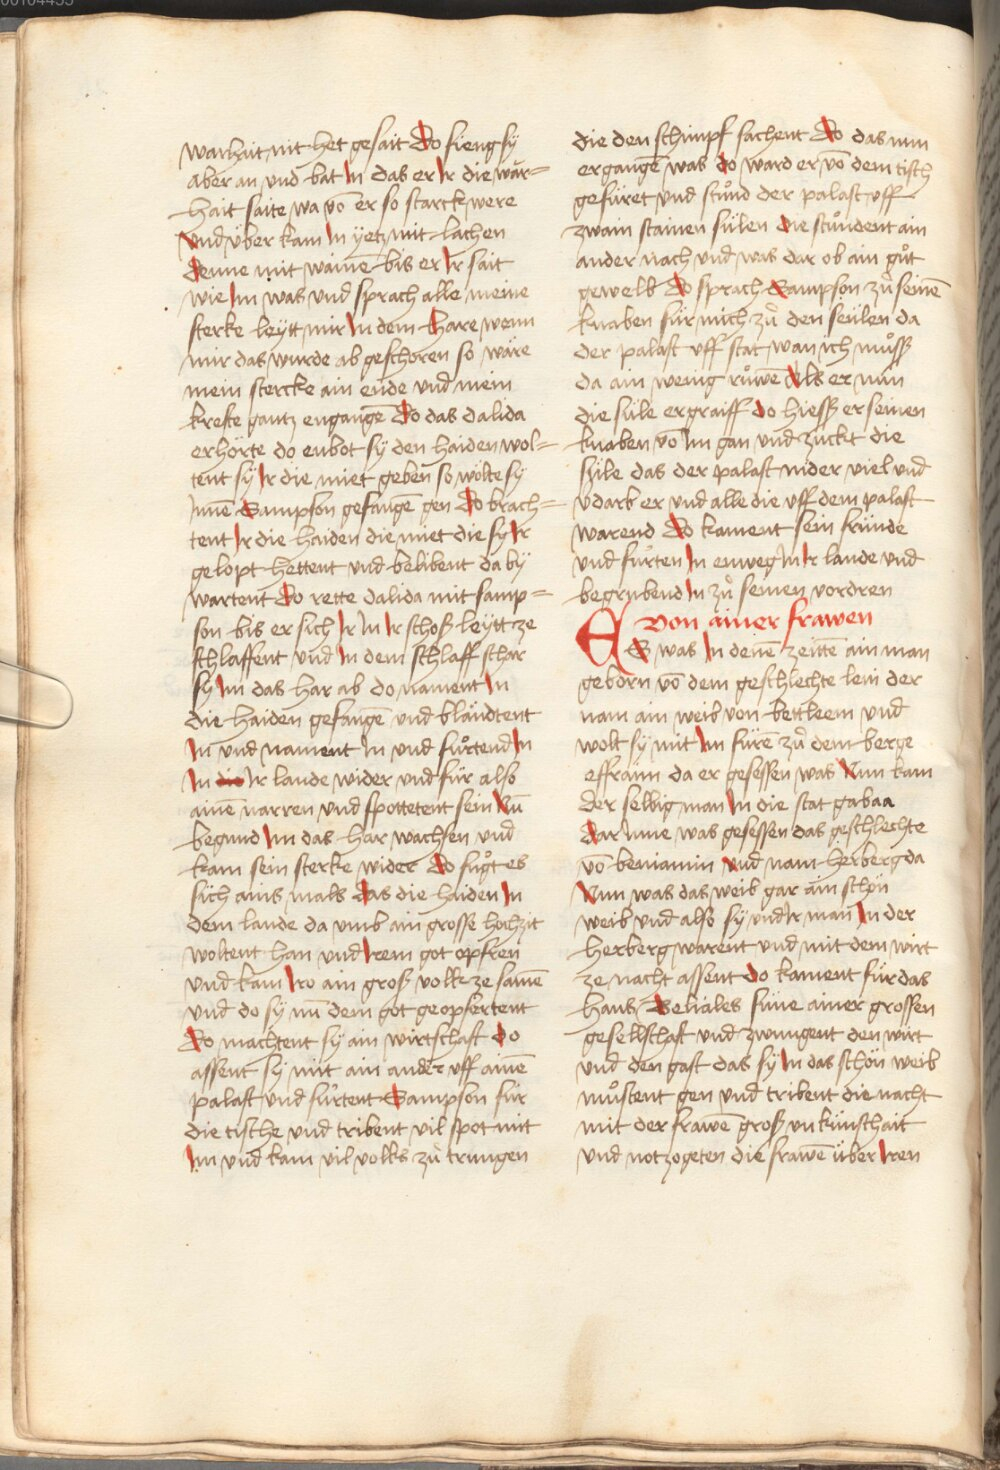 warhait nit het gesait Do fieng sy
aber an vnd bat In das er Ir die war=
hait saite wa vō er so starck were
vnd v̈ber kam In yetz mit lachen
denne mit wainē bis er Ir sait
wie Im was vnd sprach alle meine
sterke leytt mir In dem Hare wenn
mir das wurde ab geschoren so wäre
mein stercke ain ende vnd mein
krefte gantz engangē Do das dalida
erhörte do enbot sÿ den haiden wol=
tent sÿ Ir die miet geben so wölte sy
Innē Sampson gefangē gen Do brach=
tent Ir die haiden die miet die sy Ir
gelopt hettent vnd belibent da bÿ
wartent Do rette dalida mit samp=
son bis er sich Ir In Ir schoß leytt ze
schlaffent vnd In dem schlaff schar
sy Im das har ab do nament In
die haiden gefangē vnd bländtent
In vnd nament In vnd fůrtend In
In die Ir lande wider vnd für also
ainē narren vnd spottetent sein Nū
begund Im das har wachsen vnd
kam sein sterke wider Do fůgt es
sich ains mals das die haiden In
dem lande da vmb ain grosse hochzit
woltent han vnd Irem got opfren
vnd kam Iro ain groß volk ze samē
vnd do sÿ nū dem got geopfertent
Do machtent sÿ ain wirtschaft do
assent sÿ mit ain ander vff ainē
palast vnd fůrtent Sampson für
die tische vnd tribent vil spot mit
Im vnd kam vil volks zů trungen
die den schimpf sachent Do das nun
ergangē was do ward er vō dem tisch
gefüret vnd stůnd der palast vff
zwain stainen sülen die stůndent ain
ander nach vnd was dar ob ain gůt
gewelb Do sprach Sampson zů seinē
knaben für mich zů den seülen da
der palast vff stat wan ich můß
da ain wenig růwē Als er nun
die süle ergraiff do hiess er seinen
knaben vō Im gan vnd zuckt die
sile das der palast nider viel vnd
vdark er vnd alle die vff dem palast
warend Do kament sein fründe
vnd fůrten In enweg In Ir lande vnd
begrubend In zů seinen vordren
Von ainer frawen
ES was In denē zeittē ain man
geborn vō dem geschlechte lein der
nam ain weib von bettleem vnd
wolt sÿ mit Im fürē zů dem berge
effraim da er gesessen was Nun kam
der selbig man In die stat gabaa
Dar Inne was gesessen das geschlechte
vō beniamin vnd nam herberg da
Nun was das weib gar ain schön
weib vnd also sy vnd Ir man In der
herberg warent vnd mit dem wirt
ze nacht assent do kament für das
haus Beliales süne ainer grossen
gesellschaft vnd zwungent den wirt
vnd den gast das sÿ In das schön weib
můstent gen vnd tribent die nacht
mit der frawē groß vnkünschait
vnd notzogeten die frawē über Iren